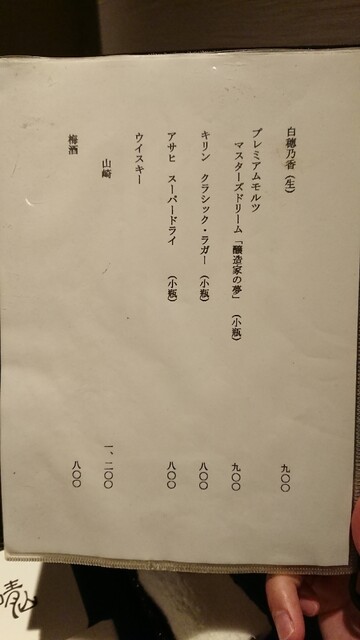 白穂乃香(生) 九〇〇
プレミアムモルツ
マスターズドリーム「醸造家の夢」(小瓶) 九〇〇
キリン クラシック・ラガー(小瓶) 八〇〇
アサヒ スーパードライ (小瓶) 八〇〇
ウイスキー
山崎 一、二〇〇
梅酒 八〇〇